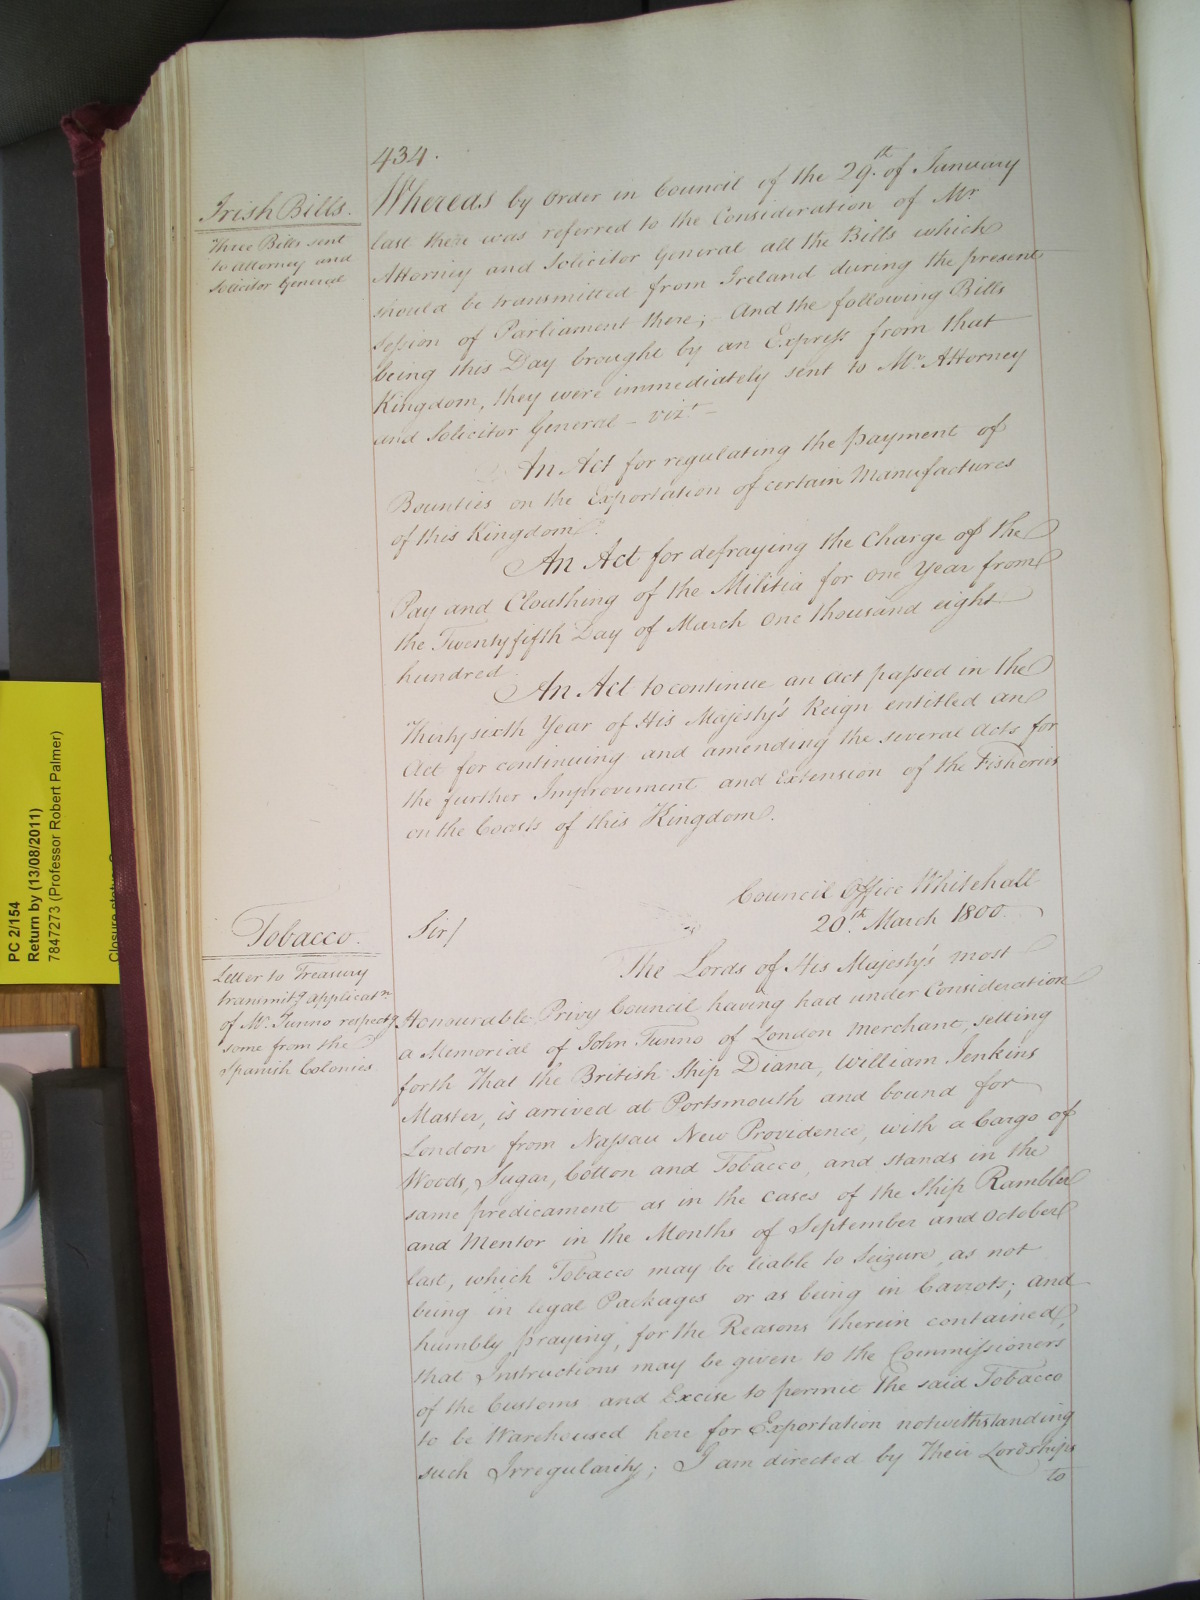 434.
Irish Bills.
Three Bills sent
to Attorney and
Solicitor General
Whereas by Order in Council of the 29.th of January
last there was referred to the Consideration of Mr.
Attorney and Solicitor General all the Bills which
should be transmitted from Ireland during the present
Session of Parliament there; And the following Bills
being this Day brought by an Express from that
Kingdom, they were immediately sent to Mr. Attorney
and Solicitor General – vizt. –
An Act for regulating the payment of
Bounties on the Exportation of certain Manufactures
of this Kingdom.
An Act for defraying the Charge of the
Pay and Cloathing of the Militia for One Year from
the Twentyfifth Day of March One thousand eight
hundred
An Act to continue an Act passed in the
Thirty sixth Year of His Majesty's Reign entitled an
Act for continuing and amending the several Acts for
the further Improvement and Extension of the Fisheries
on the Coasts of this Kingdom.
Council Office Whitehall
20th. March 1800.
Tobacco.
Letter to Treasury
transmitg. applicatn.
of Mr. Tunno respectg.
some from the
Spanish Colonies
Sir/
The Lords of His Majesty's most
Honourable Privy Council having had under Consideration
a Memorial of John Tunno of London Merchant, setting
forth That the British Ship Diana, William Jenkins
Master, is arrived at Portsmouth and bound for
London from Nassau New Providence, with a Cargo of
Woods, Sugar, Cotton and Tobacco, and stands in the
same predicament as in the Cases of the Ship Rambler
and Mentor in the Months of September and October
last, which Tobacco may be liable to Seizure, as not
being in legal Packages or as being in Carrots; and
humbly praying, for the Reasons therein contained,
that Instructions may be given to the Commissioners
of the Customs and Excise to permit the said Tobacco
to be Warehoused here for Exportation notwithstanding
such Irregularity; I am directed by Their Lordships
to
PC 2/154
Return by (13/08/2011)
7847273 (Professor Robert Palmer)
Closure status: